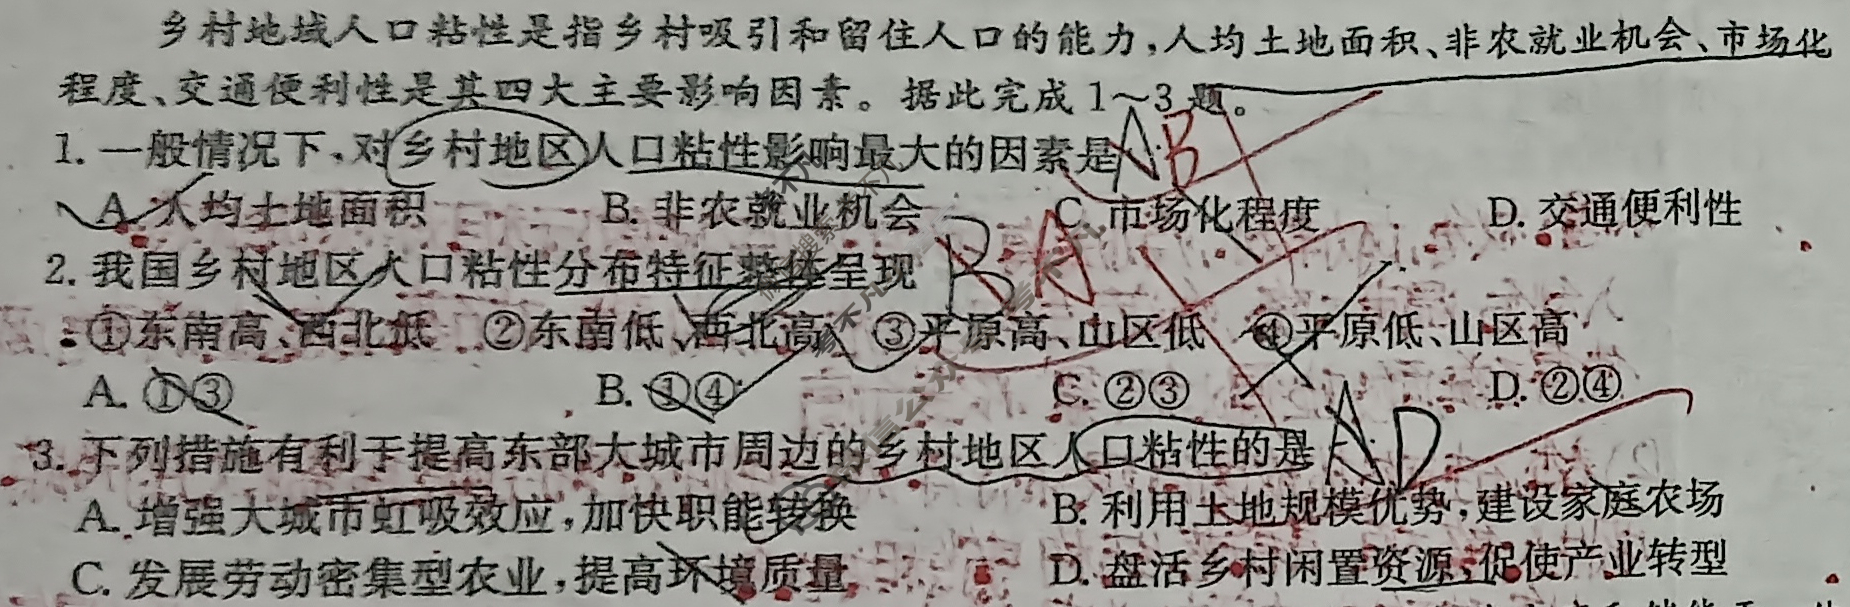 乡村地域人口粘性是指乡村吸引和留住人口的能力,人均土地面积、非农就业机会、市场化
程度、交通便利性是其四大主要影响因素。据此完成1～3题。
1. 一般情况下,对乡村地区人口粘性影响最大的因素是 A B
A. 人均土地面积 B. 非农就业机会 C. 市场化程度 D. 交通便利性
2. 我国乡村地区人口粘性分布特征整体呈现 B A
①东南高、西北低 ②东南低、西北高 ③平原高、山区低 ④平原低、山区高
A. ①③ B. ①④ C. ②③ D. ②④
3. 下列措施有利于提高东部大城市周边的乡村地区人口粘性的是 A D
A. 增强大城市虹吸效应,加快职能转换 B. 利用土地规模优势,建设家庭农场
C. 发展劳动密集型农业,提高环境质量 D. 盘活乡村闲置资源,促使产业转型